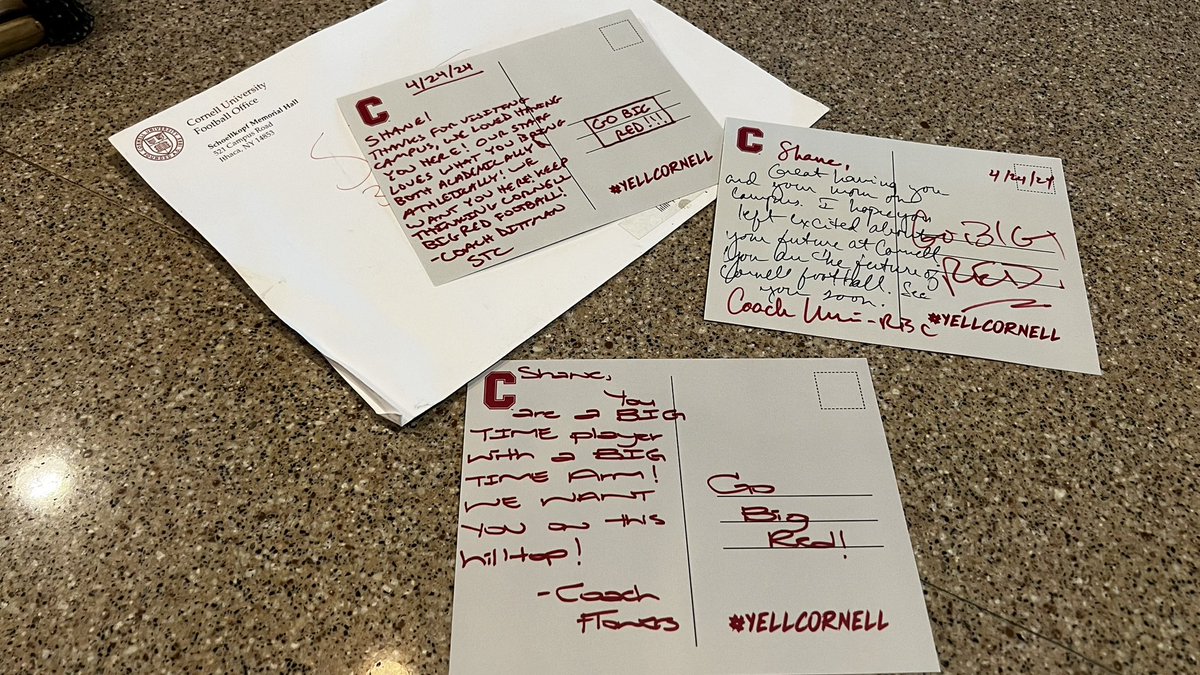 Cornell University
Football Office
Schoellkopf Memorial Hall
521 Campus Road
Ithaca, NY 14853
C
4/24/24
SHANE!
THANKS FOR VISITING
CAMPUS, WE LOVED HAVING
YOU HERE! OUR STAFF
LOVES WHAT YOU BRING
BOTH ACADEMICALLY
ATHLETICALLY! WE
WANT YOU HERE! KEEP
THINKING CORNELL
BIG RED FOOTBALL!
-COACH DITTMAN
STC
GO BIG
RED!!!
#YELLCORNELL
C
Shane,
Great having you
and your mom on
campus. I hope you
left excited about
your future at Cornell
You are the future of
Cornell football. See
you soon.
Coach - RBC
4/24/24
GO BIG
RED
#YELLCORNELL
C
Shane,
You
are a BIG
TIME player
with a BIG
TIME Arm!
WE WANT
You on this
hilltop!
-Coach
Flowers
Go
Big
Red!
#YELLCORNELL